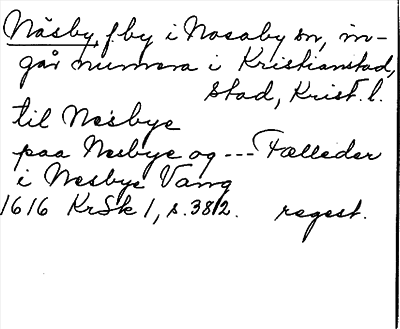 Näsby, f. by i Nosaby sn, in-
går numera i Kristianstad,
stad, Krist. l.
til Nesbye
paa Nesbye og --- Fælleder
i Nesbye Vang
1616 KrSk 1, s. 382. regest.